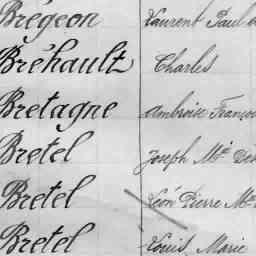 Brégeon Laurent Paul
Bréhault Charles
Bretagne Ambroise François
Bretel Joseph Mie
Bretel Léon Pierre Mie
Bretel Louis Marie